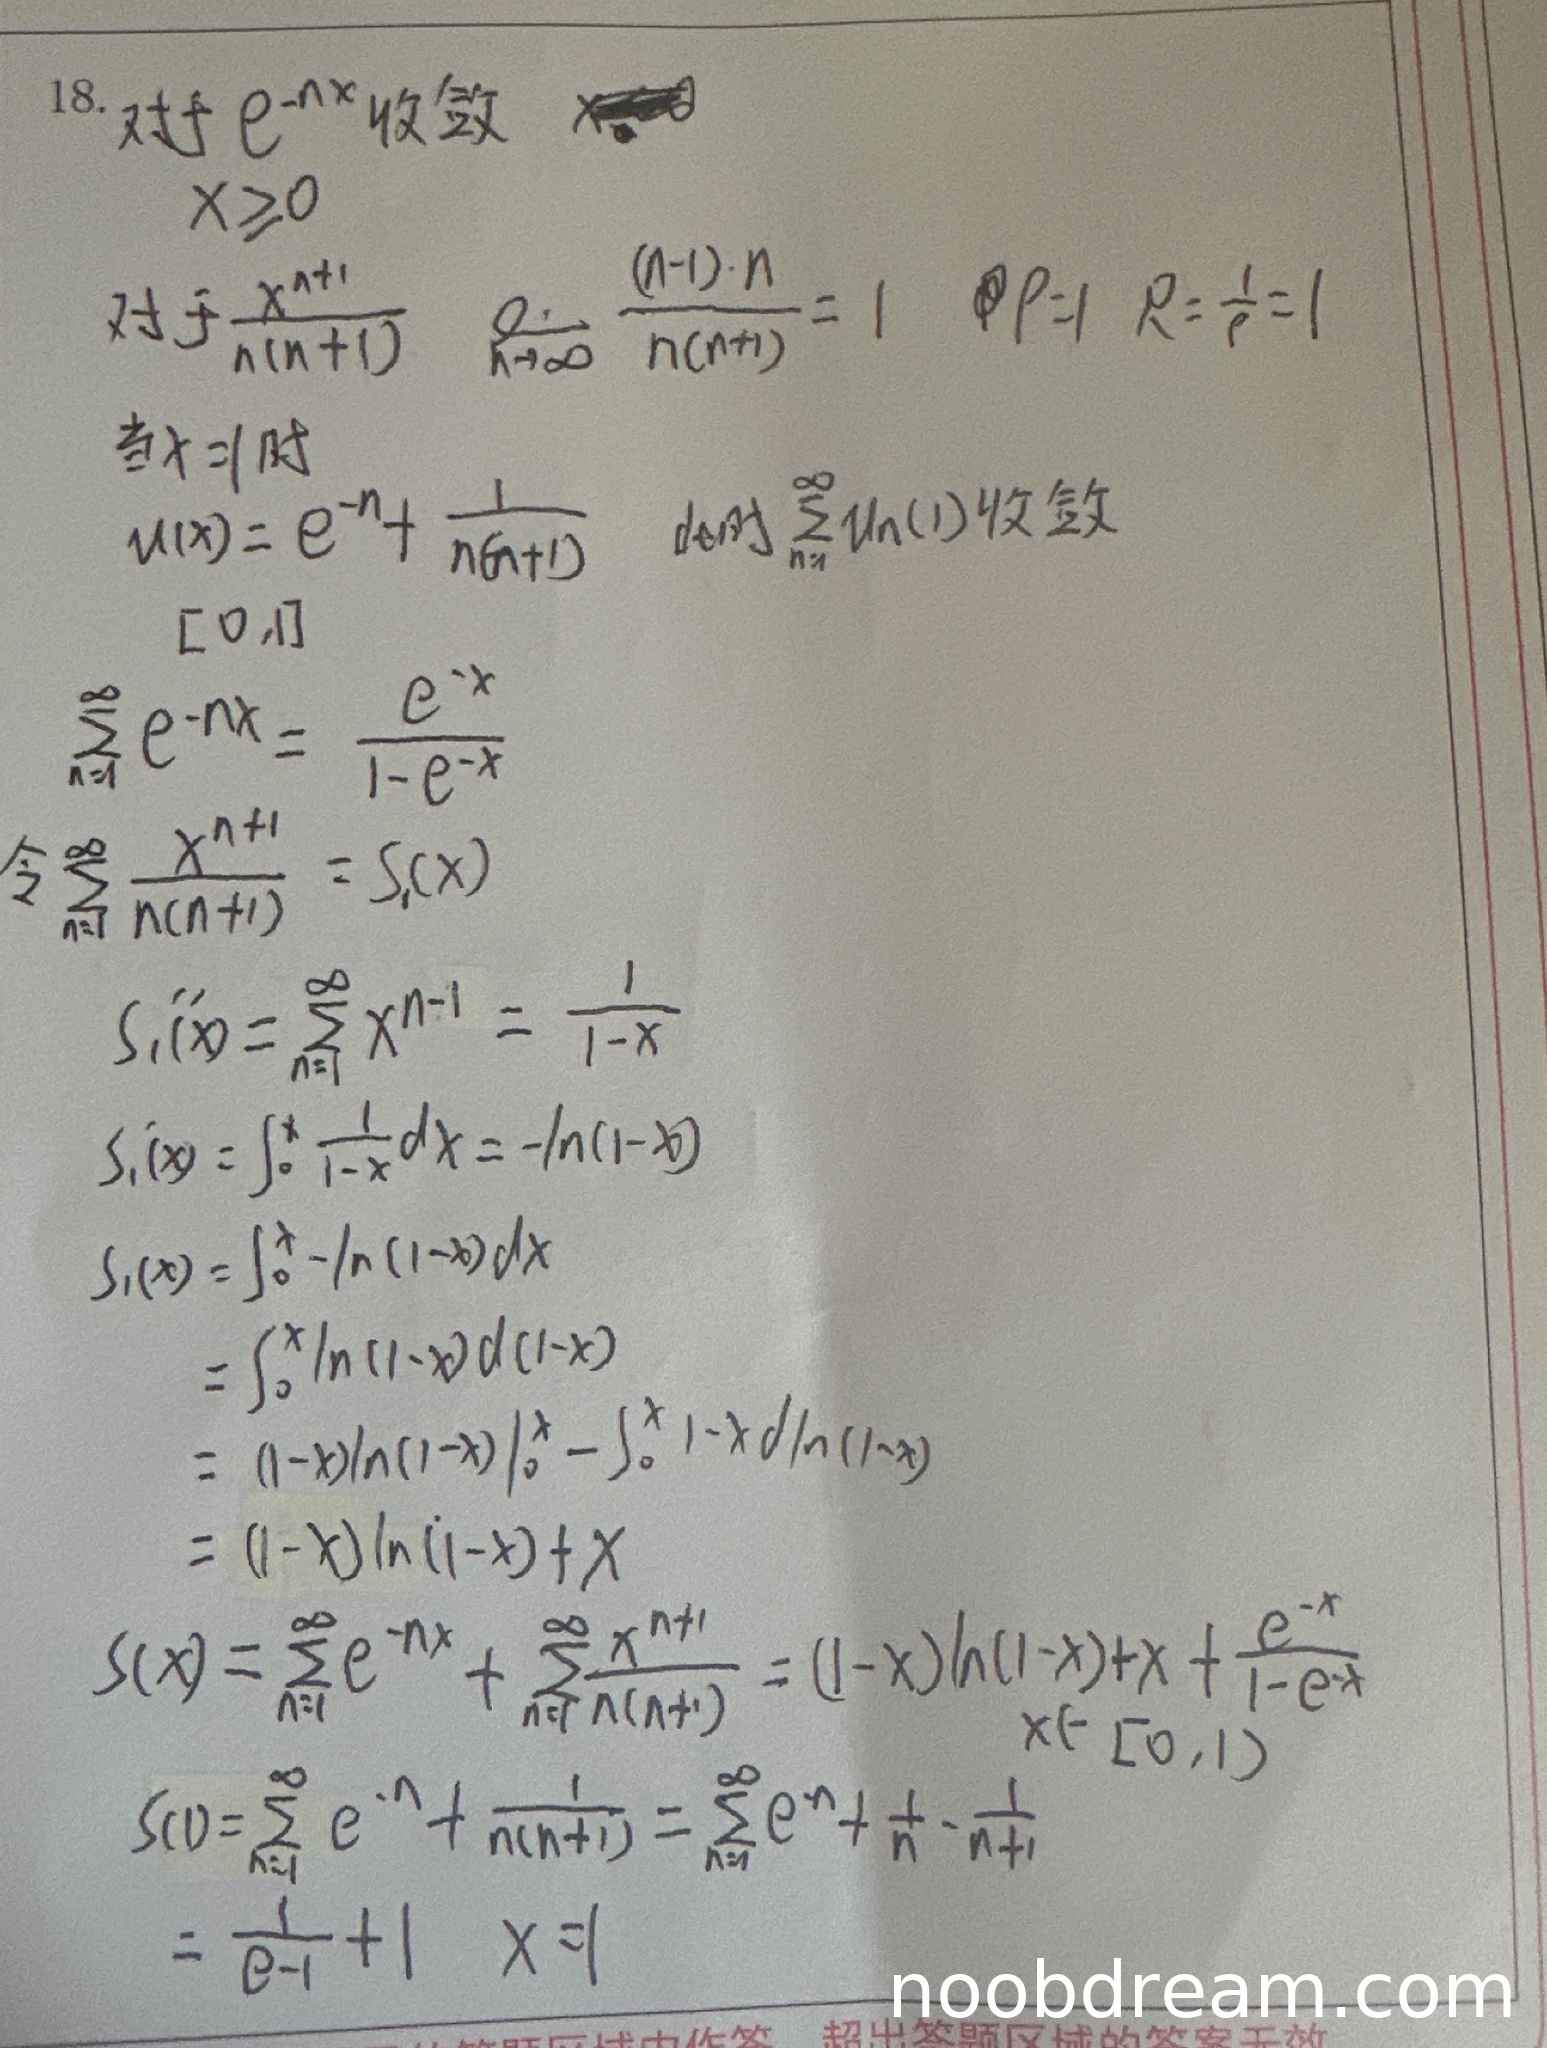 18. 对于 e^{-nx} 收敛
x≥0
对于 \frac{x^{n+1}}{n(n+1)} \frac{(n-1)·n}{n(n+1)} = 1 ρ=1 R=\frac{1}{ρ}=1
当x=1时
u(x)= e^{-n}+ \frac{1}{n(n+1)} 此时 \sum_{n=1}^{∞} Un(1) 收敛
[0,1]
\sum_{n=1}^{∞} e^{-nx} = \frac{e^{-x}}{1-e^{-x}}
令 \sum_{n=1}^{∞} \frac{x^{n+1}}{n(n+1)} = S₁(x)
S₁''(x) = \sum_{n=1}^{∞} x^{n-1} = \frac{1}{1-x}
S₁'(x) = ∫_0^x \frac{1}{1-x} dx = -ln(1-x)
S₁(x) = ∫_0^x -ln(1-x)dx
= ∫_0^x ln(1-x)d(1-x)
= (1-x)ln(1-x)|_0^x - ∫_0^x 1-x dln(1-x)
= (1-x)ln(1-x)+x
S(x) = \sum_{n=1}^{∞} e^{-nx} + \sum_{n=1}^{∞} \frac{x^{n+1}}{n(n+1)} = (1-x)ln(1-x)+x + \frac{e^{-x}}{1-e^{-x}}
x∈ [0,1)
S(1) = \sum_{n=1}^{∞} e^{-n} + \frac{1}{n(n+1)} = \sum_{n=1}^{∞} e^{-n} + \frac{1}{n} - \frac{1}{n+1}
= \frac{1}{e-1} +1 x=1
noobdream.com
答题区域内作答,超出答题区域的答案无效